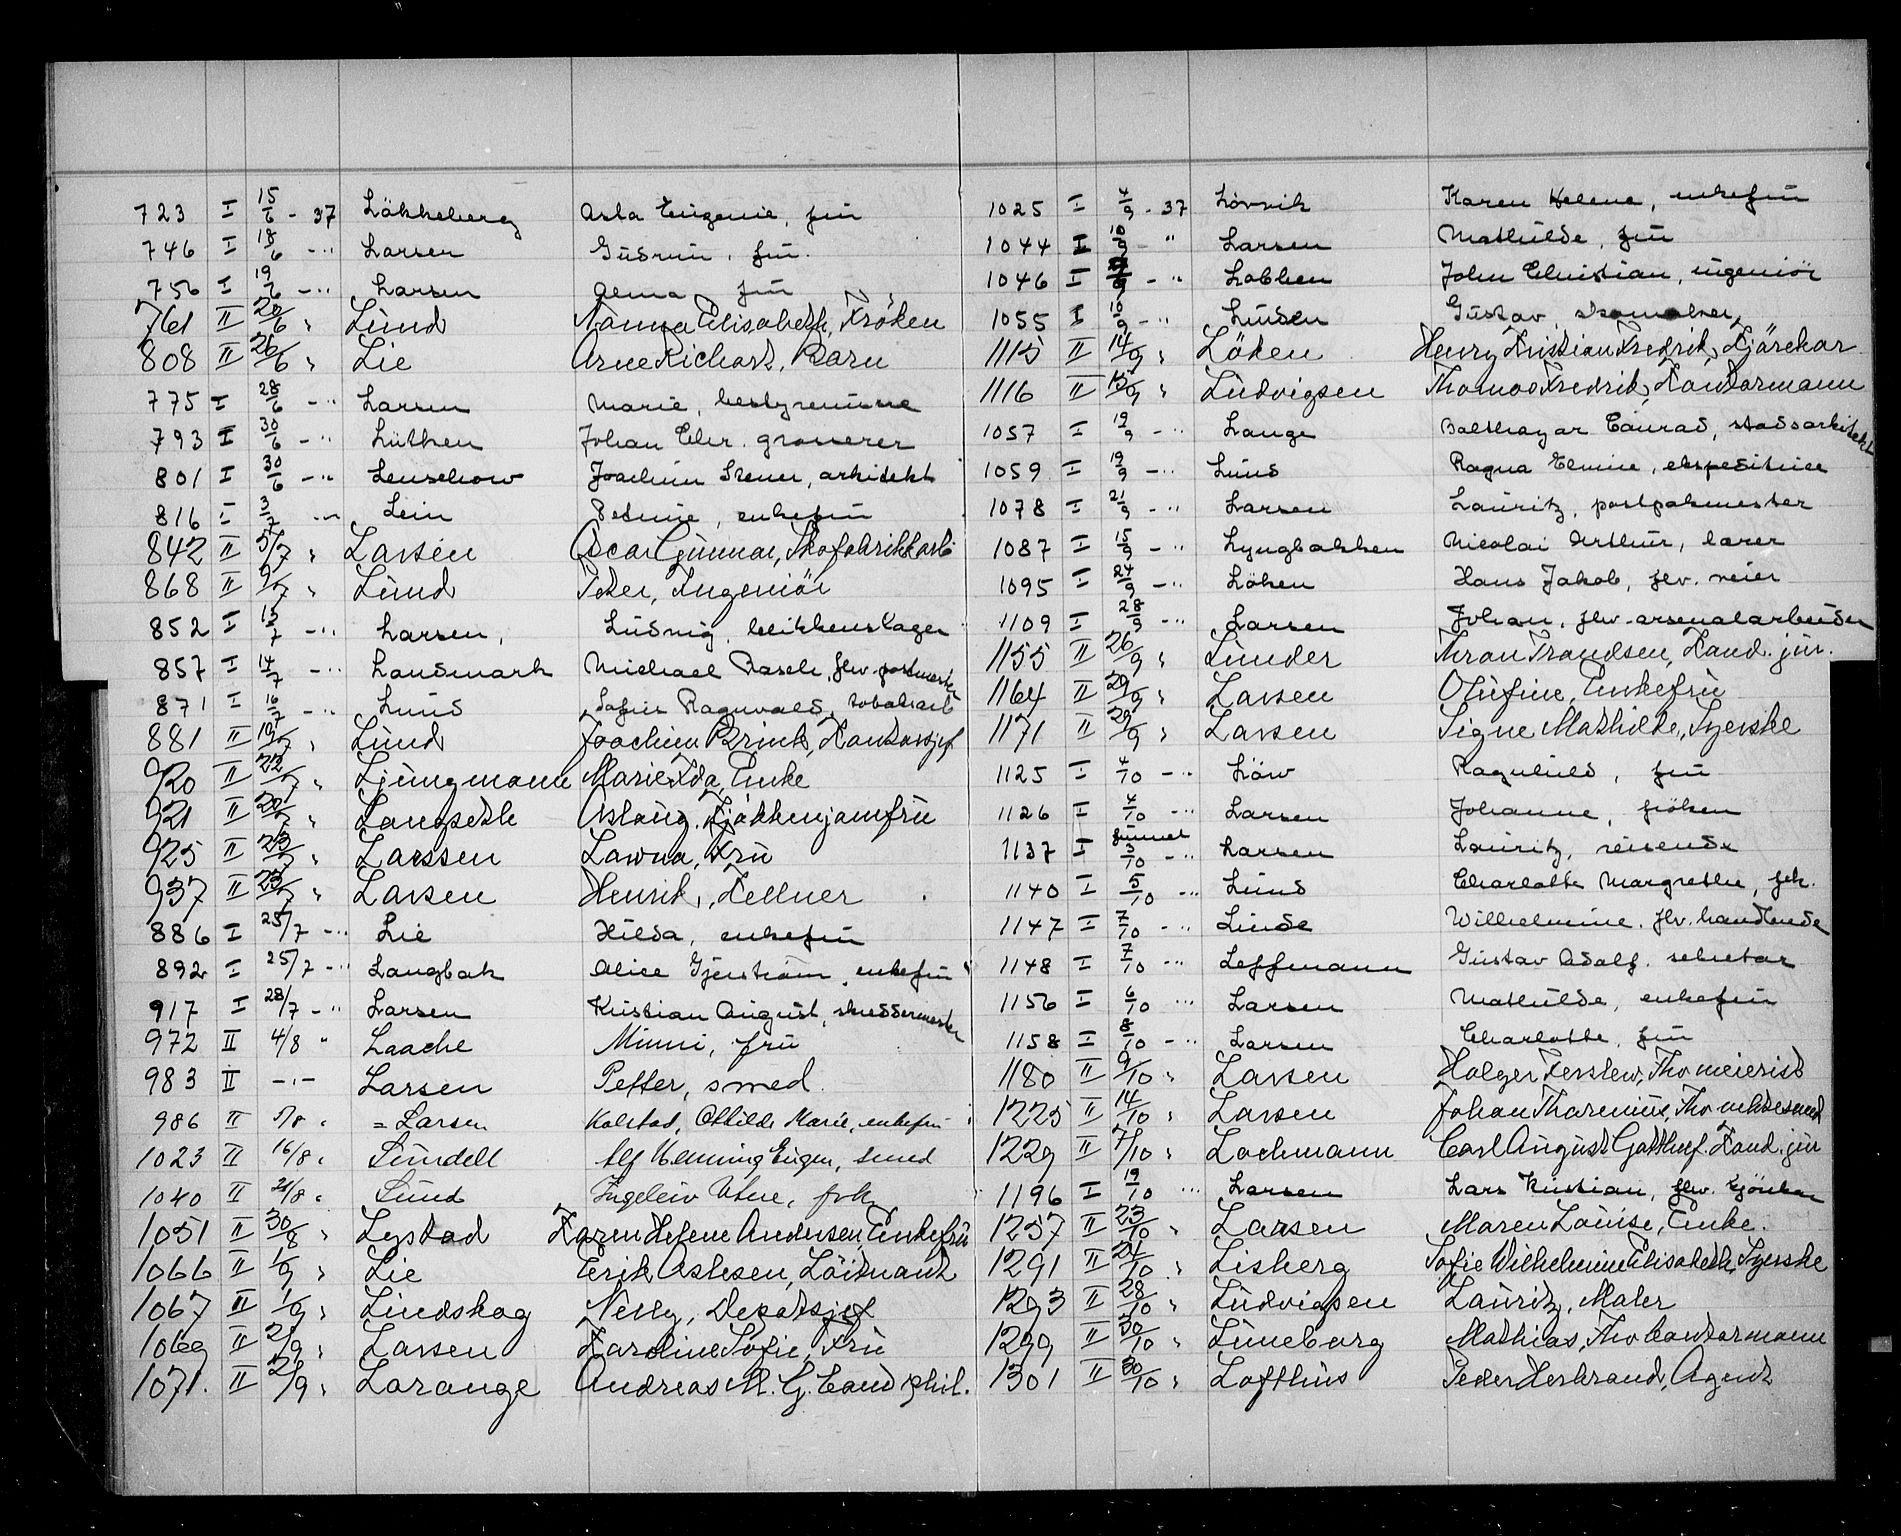 723 I 15/6 - 37 Lökkeberg Asta Eugenie, fru
746 I 18/6 - " Larsen Gudrun, fru.
756 I 19/6 - " Larsen Alma fru
761 II 20/6 " Lund Nanna Elisabeth, Fröken
808 II 26/6 " Lie Arne Richard, Barn
775 I 28/6 - " Larsen Marie, bestyrerinne
793 I 30/6 - " Lüthen Johan Chr. grosserer
801 I 30/6 - " Lenschow Joachim Stener, arkitekt
816 I 3/7 - " Lein Petrine, enkefru
842 II 5/7 " Larsen Oscar Gunnar, Skofabrikkarb
868 II 9/7 " Lund Peder, Ingeniör
852 I 13/7 - " Larsen, Ludvig, blikkenslager
857 I 14/7 - " Landmark Michael Rasch, fhv. postmester
871 I 16/7 - " Lund Ragnvald, tobaksarb
881 II 19/7 " Lund Joachim Brink, Kontorsjef
920 II 22/7 " Ljungmann Marie Ida, Enke
921 II 20/7 " Langseth Aslaug. Kjökkenjomfru
925 II 23/7 " Larssen Lawna, Fru
937 II 23/7 " Larsen Henrik, Kellner
886 I 25/7 - " Lie Hilda, enkefru
892 I 25/7 - " Langbak Alice Gjerström, enkefru
917 I 28/7 - " Larsen Kristian August, skreddermester
972 II 4/8 " Laache Minni, fru
983 II - " - Larsen Petter, smed.
986 II 7/8 " = Larsen Kolstad, Othilde Marie, enkefru
1023 II 16/8 " Lundell Alf Henning Eugen, smed
1040 II 21/8 " Lund Ingeleiv Utne, frk
1051 II 30/8 " Lystad Karen Helene Andersen, Enkefru
1066 II 1/9 " Lie Erik Aslesen, Löitnant
1067 II 1/9 " Lindskog Nelly, Depotsjef
1069 II 2/9 " Larsen Karoline Sofie, Fru
1071. II 2/9 " Lorange Andreas M. G. Cand phil.
1025 I 4/9 - 37 Lövvik Karen Helene, enkefru
1044 I 10/9 - " Larsen Mathilde, fru
1046 I 9 - " Lobben John Christian, ingeniör
1055 I 10/9 - " Lunden Gustav skomaker,
1115 II 14/9 " Löken Henry Kristian Fredrik, Kjörekar
1116 II 15/9 " Ludvigsen Thomas Fredrik, Kontormann
1057 I 19/9 - " Lange Balthazar Conrad, stadsarkitekt
1059 I 19/9 - " Lund Ragna Elmine, ekspeditrice
1078 I 21/9 - " Larsen Lauritz, postpakmester
1087 I 15/9 - " Lyngbakken Nicolai Arthur, lærer
1095 I 24/9 - " Löken Hans Jakob, fhv. veier
1109 I 28/9 - " Larsen Johan, fhv. arsenalarbeider
1155 II 26/9 " Lunder Thron Trondsen, Kand. jur.
1164 II 29/9 " Larsen Olufine, Enkefru
1171 II 29/9 " Larsen Signe Mathilde, Syerske
1125 I 4/10 - " Löw Ragnhild, fru
1126 I 4/10 - " Larsen Johanne, fröken
1137 I funnet 3/10 - " Larsen Lauritz, reisende
1140 I 5/10 - " Lund Charlotte Margrethe, frk.
1147 I 7/10 - " Linde Wilhelmine. fhv. handlende
1148 I 7/10 - " Leffmann Gustav Adolf. sekretær
1156 I 6/10 " Larsen Mathilde, enkefru
1158 I 8/10 - " Larsen Charlotte, fru
1180 II 9/10 " Larsen Holger Ferslew, Fhv meierist
1225 II 14/10 " Larsen Johan Tharenius, Fhv
1229 II 7/10 " Lochmann Carl August Gotthilf. Kand. jur
1196 I 19/10 " Larsen Lars Kristian, fhv. Gjörtler
1257 II 23/10 " Larsen Maren Louise, Enke.
1291 II 24/10 " Lisberg Sofie Wilhelmine Elisabeth, Syerske
1293 II 28/10 " Ludvigsen Lauritz, Maler
1299 II 30/10 " Lüneborg Mathias, Fhv Kontormann
1301 II 30/10 " Lofthus Peder Herbrand, Agent